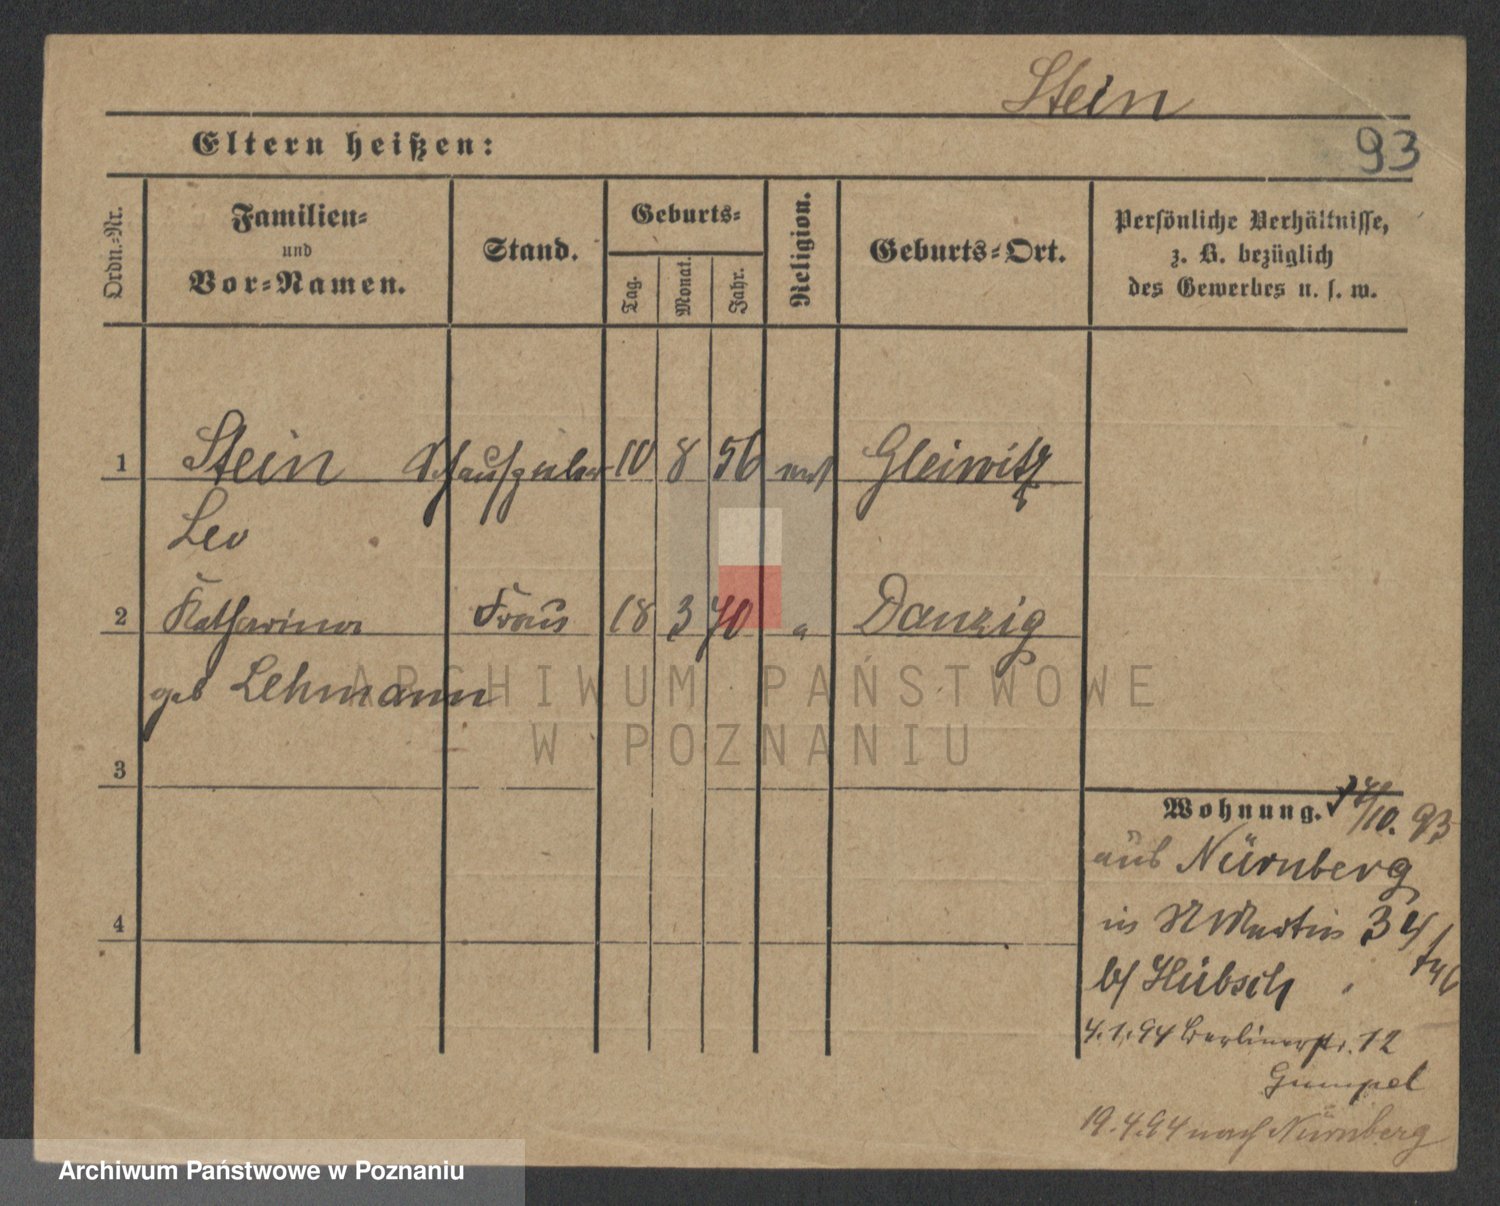 Stein
93
Eltern heißen:
Ordn.-Nr.
Familien-
und
Vor-Namen.
Stand.
Geburts-
Tag.
Monat.
Jahr.
Religion.
Geburts-Ort.
Persönliche Verhältnisse,
z. B. bezüglich
des Gewerbes u. s. w.
1 Stein Schauspieler 10 8 56 Gleiwitz
Leo
2 Katharina Frau 18 3 70 " Danzig
geb Lehmann
ARCHIWUM PAŃSTWOWE
W POZNANIU
3
4
Wohnung. /10. 93
aus Nürnberg
in St Martin 34
b/ Hübsch
4.1.94 Berlinerstr. 12
Gumpel
19.4.94 nach Nürnberg
Archiwum Państwowe w Poznaniu